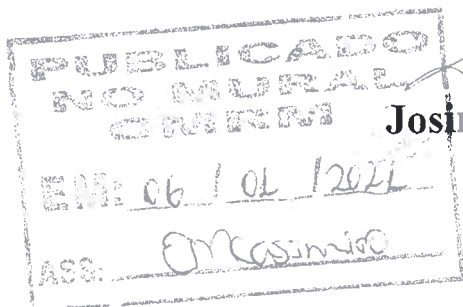 PUBLICADO
NO MURAL
CMRM
Josi
EM: 06 / 01 / 2021
ASS: